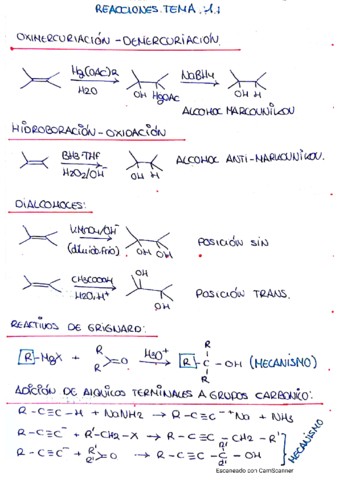 REACCIONES TEMA 1.
OXIMERCURIACIÓN-DEMERCURIACIÓN
Hg(OAc)2 NaBH4
H2O
OH HgOAc OH H
ALCOHOL MARCOUNIKOU
HIDROBORACIÓN-OXIDACIÓN
BH3·THF ALCOHOL ANTI-MARKOUNIKOU.
H2O2/OH⁻ OH H
DIALCOHOLES:
KMnO4/OH⁻ POSICIÓN SIN
(diluido, frío) OH OH
OH
CH3COOOH POSICIÓN TRANS.
H2O, H⁺ OH
REACTIVOS DE GRIGNARD:
R
R-MgX + R R >=O H3O⁺ R-C-OH (MECANISMO)
R
ADICIÓN DE ALQUINOS TERMINALES A GRUPOS CARBONILO:
R-C≡C-H + NaNH2 → R-C≡C⁻ ⁺Na + NH3
R-C≡C⁻ + R'-CH2-X → R-C≡C-CH2-R'
R-C≡C⁻ + R' R' >=O → R-C≡C-C-OH
MECANISMO
Escaneado con CamScanner